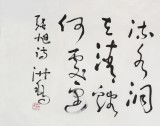 流水洞
在清谿
何處邊
張旭詩